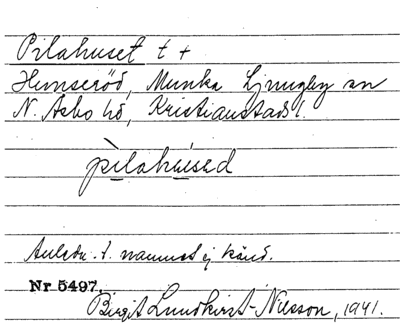 Pilahuset t +
Hunseröd, Munka Ljungby sn
N. Åsbo hd, Kristianstads l.
pìlahúsed
Anledn. t. namnet ej känd.
Nr 5497.
Birgit Lundkvist-Nilsson, 1941.